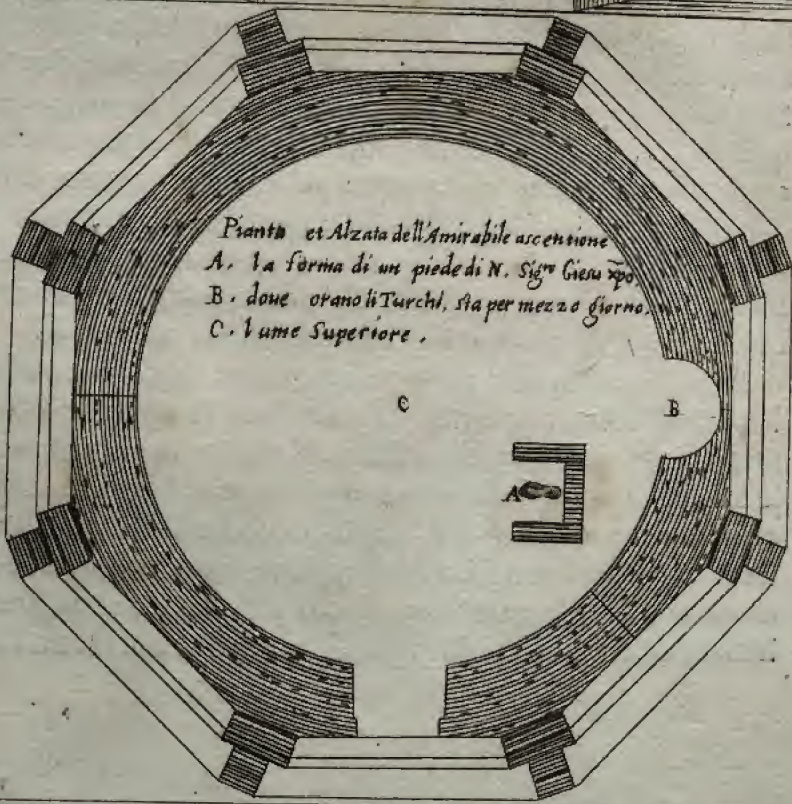 Pianta et Alzata dell'Amirabile ascentione
A. la forma di un piede di N. Sig.re Giesu xp̄o
B. doue orano li Turchi, sta per mezzo giorno.
C. lume Superiore.
C
B
A